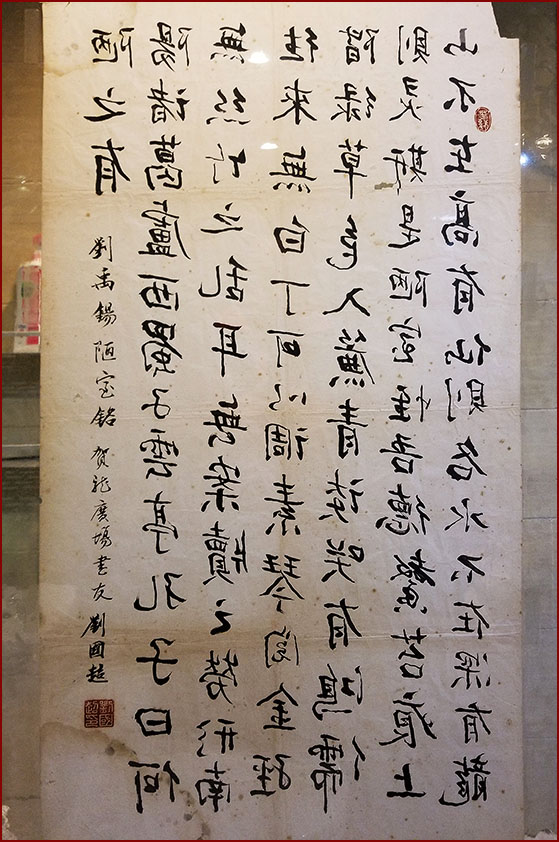 山不在高有仙則名水不在深有龍
則灵斯是陋室惟吾德馨苔痕上
階緑草色入簾青谈笑有鴻儒
往來無白丁可以调素琴阅金経
無丝竹之乱耳無案牘之勞形南
陽诸葛廬西蜀子雲亭孔子曰何
陋之有
劉禹錫 陋室銘 贺龙廣場書友 劉國超